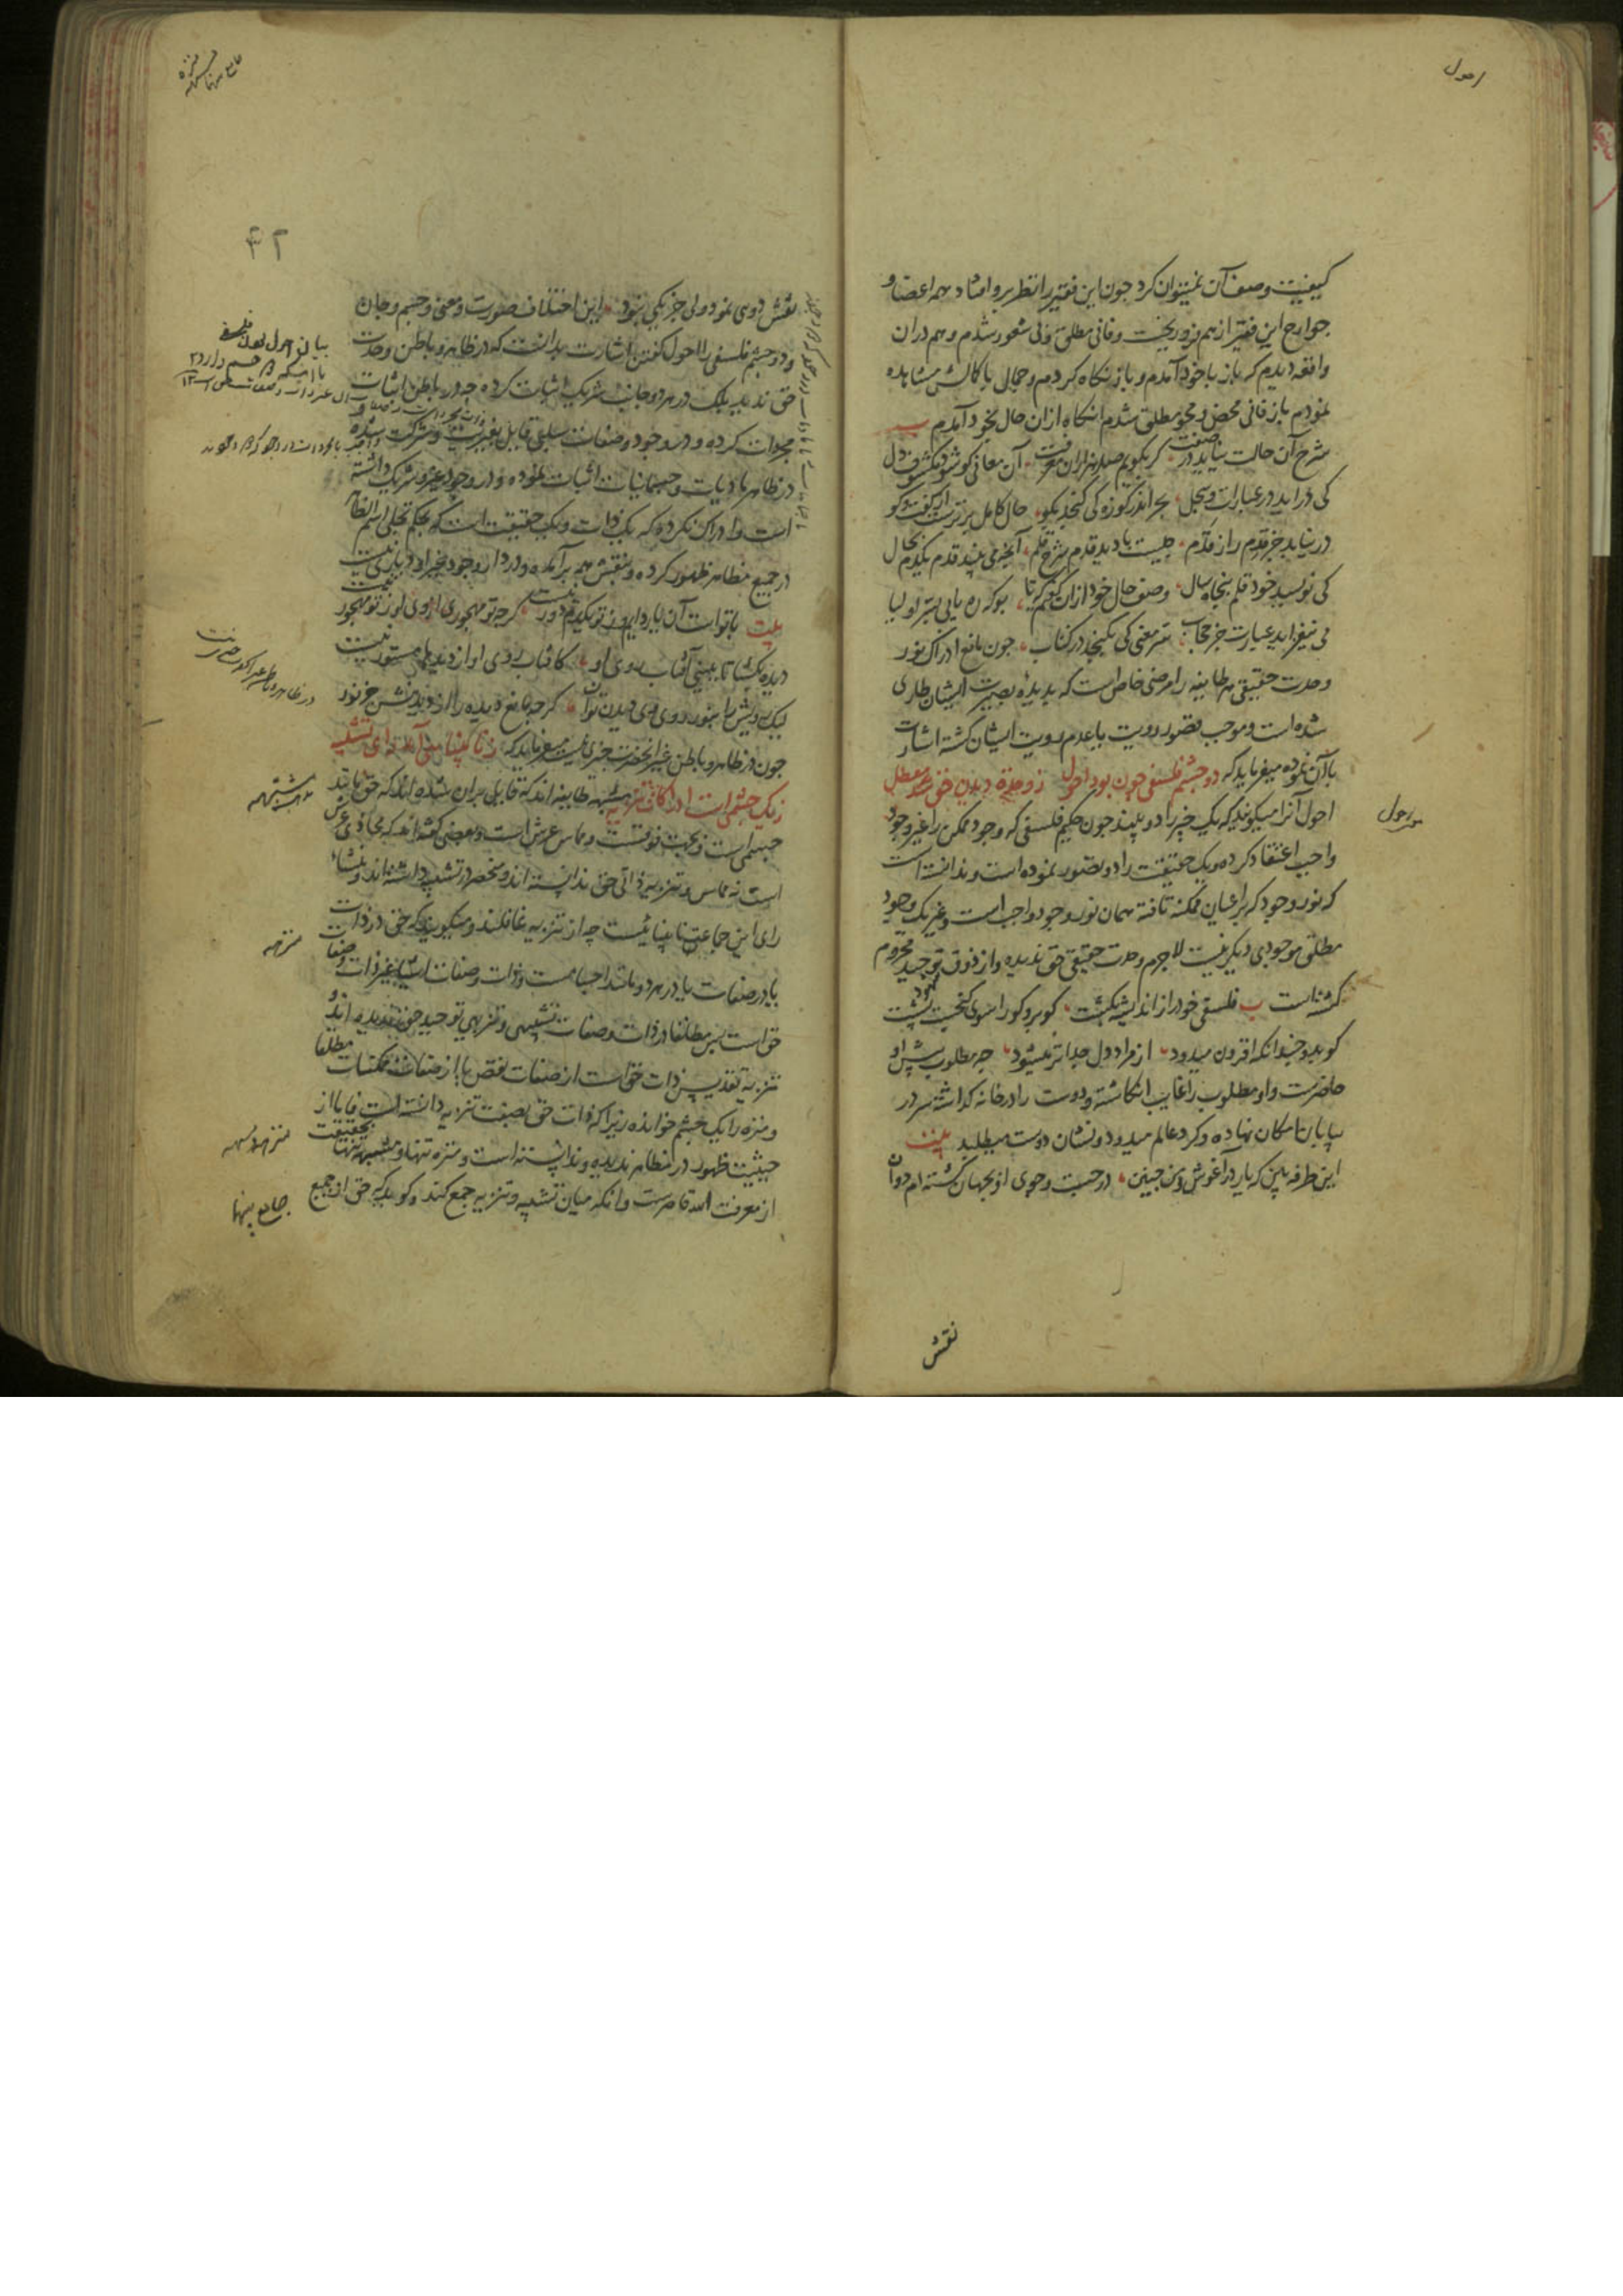 احول
کیفیت وصف آن نمیتوان کرد جون این فقیر را نظر برو افتاد همه اعضا و
جوارح این فقیر از هم فرو ریخت و فانی مطلق و بی شعور شدم و هم دران
واقعه دیدم که باز با خود آمدم و باز نکاه کردم و جمال با کمالش مشاهده
نمودم باز فانی محض و محو مطلق شدم انکاه ازان حال بخود آمدم
شرح آن حالت نیاید در صفت کر بکویم صد هزاران معرفت آن معانی کو شود مکشوف دل
کی در اید در عبارات و سجل بحر اندر کوزه کی کنجد بکو حال کامل برترست از کفت و کو
در نیابد جز قدم راز قدم نیست یا دید قدم شرح قلم آنچه می بیند قدم یکدم بحال
کی نویسد خود قلم پنجاه سال وصف حال خود ازان کویم کریا بو که ره یابی بسر اولیا
می نیفزاید عبارت جز حجاب سر معنی کی بکنجد در کتاب جون مانع ادراک نور
وحدت حقیقی هر طایفه را مرضی خاص است که بدیده بصیرت ایشان طاری
شده است و موجب قصور رویت یا عدم رویت ایشان کشته اشارت
بآن نموده میفرماید که دو جشم فلسفی چون بود احول ز وحدة دیدن حق شد معطل
احول آنرا میکویند که یک چیز را دو بیند جون حکیم فلسفی که وجود ممکن را غیر وجود
واجب اعتقاد کرده و یک حقیقت را دو تصور نموده است و ندانسته است
که نور وجود که بر اعیان ممکنه تافته همان نور وجود واجب است و غیر یک وجود
مطلق موجودی دیکر نیست لاجرم وحدت حقیقی حق ندیده و از ذوق توحید محروم
کشته است فلسفی خود را از اندیشه بکشت کو برو کورا سوی کنجست پشت
کو بدو جندانکه افزون میدود از مراد دل جداتر میشود جه مطلوب پیش او
حاضرست و او مطلوب را غایب انکاشته و دوست را در خانه کذاشته سر در
بیابان امکان نهاده و کرد عالم میدود و نشان دوست میطلبد بیت
این طرفه ببین که یار در آغوش و من جنین در جست و جوی او بجهان کشته ام دوان
نقش
جامع بینها
۴۲
نقش دوی نمود ولی جز یکی نبود این اختلاف صورت و معنی و جسم و جان
و دو جشم فلسفی را احول کفتن اشارت بدانست که در ظاهر و باطن وحدت
حق ندیده بلکه در هر دو جانب شریک اثبات کرده جه در باطن اثبات
مجردات کرده و در وجود و صفات سلبی قایل بغیریت و شرکت شده
در ظاهر مادیات و جسمانیات اثبات نموده و در وجود غیر و شریک داشته
است و ادراک نکرده که یک ذات و یک حقیقت است که بحکم تجلی اسم الظاهر
در جمیع مظاهر ظهور کرده و بنقش همه برآمده و در دار وجود غیر او دیاری نیست
بیت با تو است آن یار دایم وز تو یکدم دور نیست کرجه تو مهجوری از وی او ز تو مهجور نیست
دیده بکشا تا ببینی آفتاب روی او کافتاب روی او از دیدها مستور نیست
لیک رویش را بنور روی وی دیدن توان کرجه مانع دیده را از دیدنش جز نور
جون در ظاهر و باطن غیر آنحضرت جیزی نیست میفرماید که ز نابینایی آمد رای تشبیه
ز یک جشمی است ادراکات تنزیه مشبهه طایفه اند که قایل بران شده اند که حق مانند
جسمی است و بجهت فوقست و مماس عرش است و بعضی کفته اند که محاذی عرش
است نه مماس و تنزیه ذاتی حق ندانسته اند و منحصر در تشبیه داشته اند و منشاء
رای این جماعت نابینائیست چه از تنزیه غافلند و میکویند که حق در ذات
یا در صفات یا در هر دو مانند اجسامست و ذات و صفات اشیا غیر ذات و صفات
حق است پس مطلقا در ذات و صفات تشبیهی و تنزیهی توحید حق ندیده اند و
تنزیه تقدیس ذات حق است از صفات نقص یا از صفات ممکنات مطلقا
و منزه را یک جشم خوانده زیرا که ذات حق بصفت تنزیه دانسته است فاما از
حیثیت ظهور در مظاهر ندیده و ندانسته است و منزه تنها و مشبهه تنها بحقیقت
از معرفت الله قاصرست و انکه میان تشبیه و تنزیه جمع کند و کوید که حق از جمیع
مشبهه
منزهه
جامع بینها